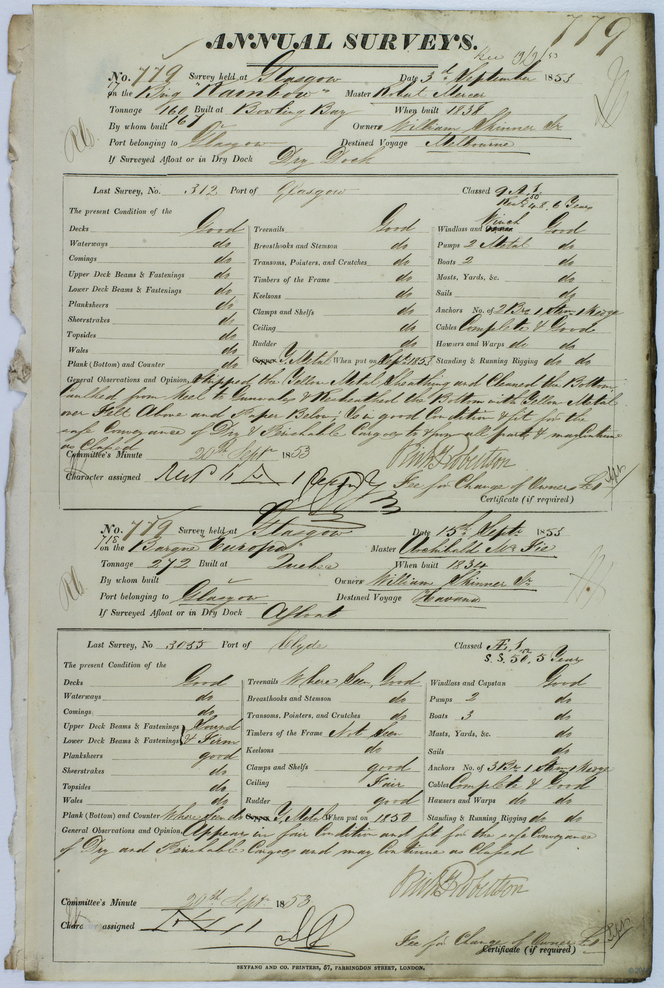 779
ANNUAL SURVEYS.
No. 779 Survey held at Glasgow Date 3d September 1853
17 on the Brig "Rainbow" Master Robert
Tonnage 160 Built at Bowling Bay When built 1838
167
By whom built Owners William Skinner Sr
Port belonging to Glasgow Destined Voyage Melbourne
If Surveyed Afloat or in Dry Dock Dry Dock
Last Survey, No. 312 Port of Glasgow Classed 9 A. 1.
6 Years
The present Condition of the
Winch
Decks Good Treenails Good Windlass and Good
Waterways do Breasthooks and Stemson do Pumps 2 Metal do
Comings do Transoms, Pointers, and Crutches do Boats 2 do
Upper Deck Beams & Fastenings do Timbers of the Frame do Masts, Yards, &c. do
Lower Deck Beams & Fastenings do Keelsons do Sails do
Planksheers do Clamps and Shelfs do Anchors No. of 2 Br 1 Strm 1 Kedge
Sheerstrakes do Ceiling do Cables Complete & Good
Topsides do Rudder do Hawsers and Warps do do
Wales do Copper Y. Metal When put on Sept 1853 Standing & Running Rigging do do
Plank (Bottom) and Counter do
General Observations and Opinion, Stripped the Yellow Metal Sheathing and Cleaned the Bottom,
Caulked from Keel to Gunwale & Resheathed the Bottom with Yellow Metal
over Felt Above and Paper Below; Is in good Condition & fit for the
safe Conveyance of Dry & Perishable Cargoes to & from all parts & may Continue
as Classed
Committee's Minute 20th Sept 1853 Robertson
Character assigned
Fee for Change of Owners £
Certificate (if required)
No. 779 Survey held at Glasgow Date 15th Sept. 1853
718 on the Barque Europa Master Archibald Mc Fie
Tonnage 272 Built at Quebec When built 1834
By whom built Owners William Skinner Sr
Port belonging to Glasgow Destined Voyage Havana
If Surveyed Afloat or in Dry Dock Afloat
Last Survey, No 3055 Port of Clyde Classed Æ. 1.
S. S. 50. 5 Years
The present Condition of the
Decks Good Treenails Where Seen, Good Windlass and Capstan Good
Waterways do Breasthooks and Stemson do Pumps 2 do
Comings do Transoms, Pointers, and Crutches do Boats 3 do
Upper Deck Beams & Fastenings Sound Timbers of the Frame Not Seen Masts, Yards, &c. do
Lower Deck Beams & Fastenings & Firm Keelsons do Sails do
Planksheers good Clamps and Shelfs good Anchors No. of 3 Br 1 Strm 1 Kedge
Sheerstrakes do Ceiling Fair Cables Complete & Good
Topsides do Rudder good Hausers and Warps do do
Wales do Copper Y. Metal When put on 1850 Standing & Running Rigging do do
Plank (Bottom) and Counter Where Seen do
General Observations and Opinion, Appears in fair Condition and fit for the safe Conveyance
of Dry and Perishable Cargoes and may Continue as Classed
Robertson
Committee's Minute 20th Sept 1853
Character assigned
Fee for Change of Owners £
Certificate (if required)
SEYFANG AND CO. PRINTERS, 57, FARRINGDON STREET, LONDON.